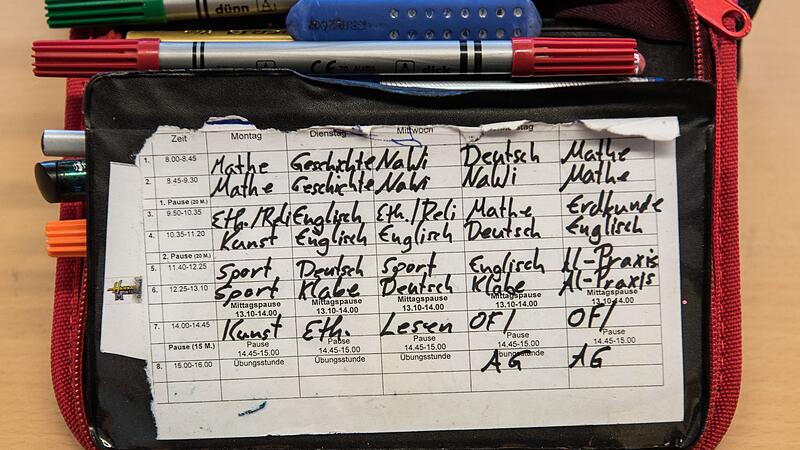 dünn A
CE
Zeit Montag Dienstag Mittwoch
1. 8.00-8.45 Mathe Geschichte NaWi Deutsch Mathe
2. 8.45-9.30 Mathe Geschichte NaWi NaWi Mathe
1. Pause (20 M.)
3. 9.50-10.35 Eth./Reli Englisch Eth./Reli Mathe Erdkunde
4. 10.35-11.20 Kunst Englisch Englisch Deutsch Englisch
2. Pause (20 M.)
5. 11.40-12.25 Sport Deutsch Sport Englisch Al-Praxis
6. 12.25-13.10 Sport Klabe Deutsch Klabe Al-Praxis
Mittagspause Mittagspause Mittagspause Mittagspause Mittagspause
13.10-14.00 13.10-14.00 13.10-14.00 13.10-14.00 13.10-14.00
7. 14.00-14.45 Kunst Eth. Lesen OF1 OF1
Pause (15 M.) Pause Pause Pause Pause Pause
14.45-15.00 14.45-15.00 14.45-15.00 14.45-15.00 14.45-15.00
8. 15.00-16.00 Übungsstunde Übungsstunde Übungsstunde Übungsstunde
AG AG